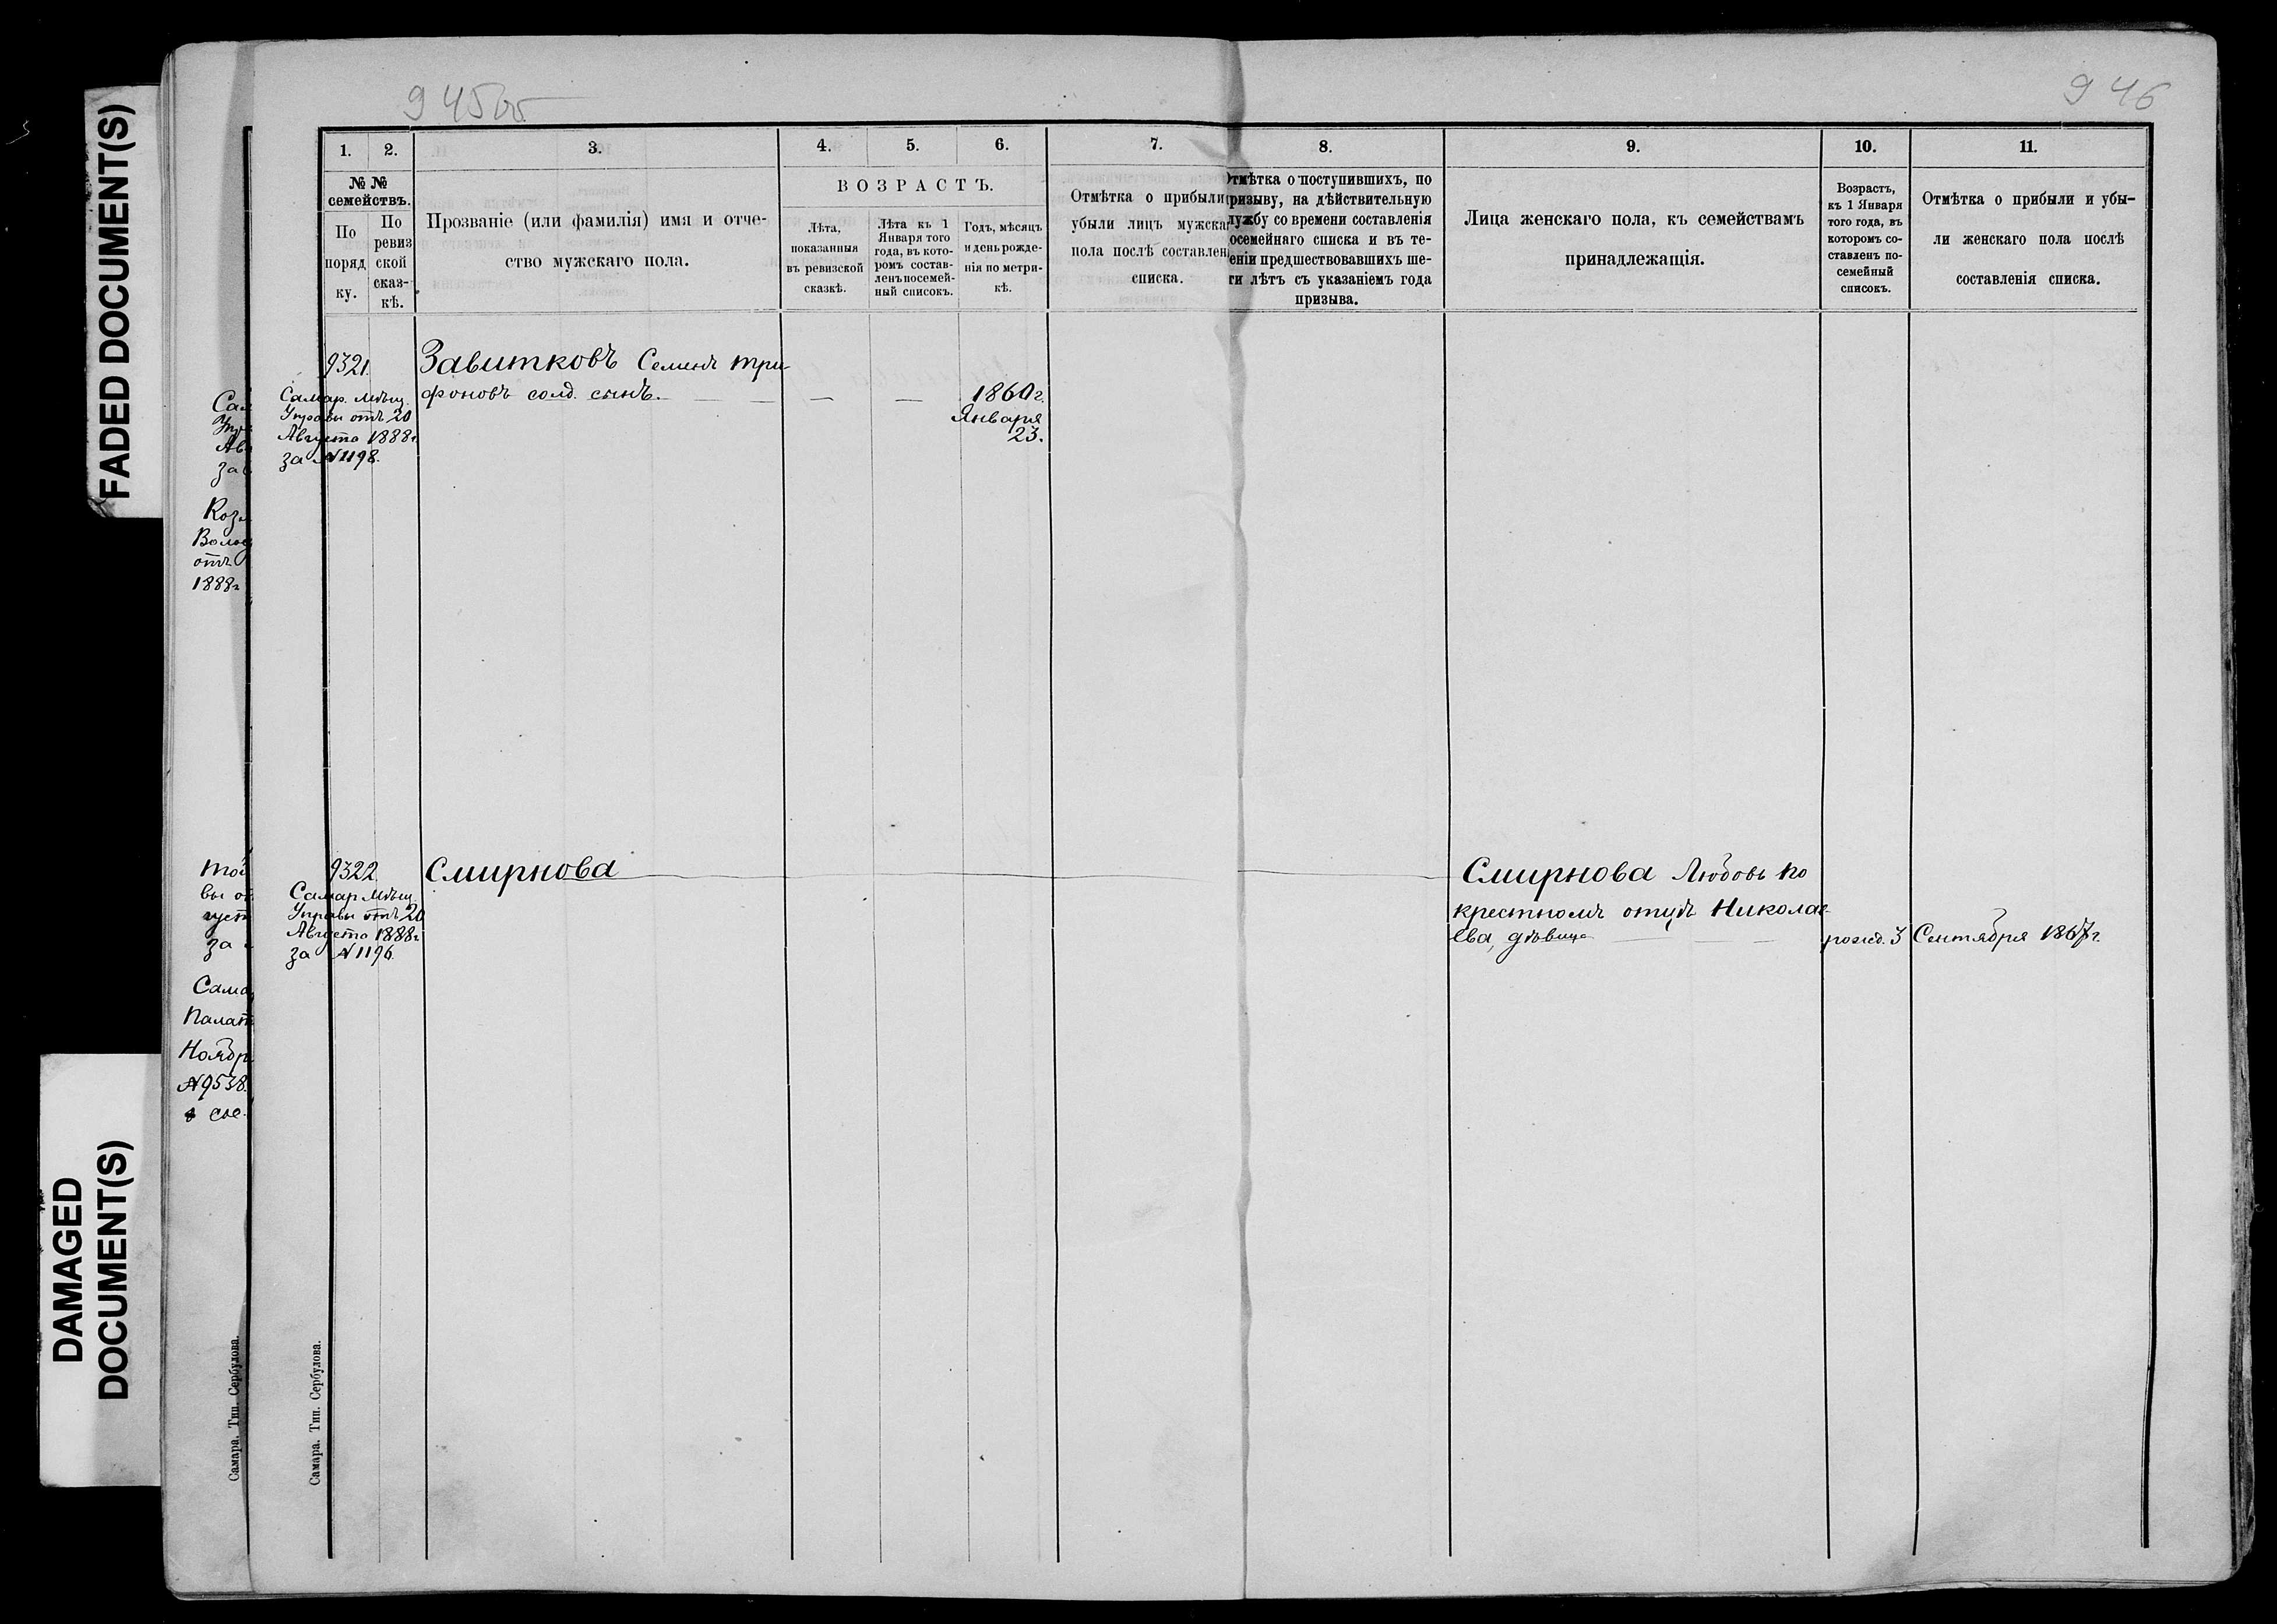 FADED DOCUMENT(S)
DAMAGED
DOCUMENT(S)
945об
946
1.
2.
3.
4.
5.
6.
7.
8.
9.
10.
11.
№ №
семействъ.
По
поряд
ку.
По
ревиз
ской
сказ-
кѣ.
Прозваніе (или фамилія) имя и отче-
ство мужскаго пола.
ВОЗРАСТЪ.
Лѣта,
показанныя
въ ревизской
сказкѣ.
Лѣта къ 1
Января того
года, въ кото-
ромъ состав-
ленъ посемей-
ный списокъ.
Годъ, мѣсяцъ
и день рожде-
нія по метри-
кѣ.
Отмѣтка о прибыли
убыли лицъ мужска
пола послѣ составлен
списка.
Отмѣтка о поступившихъ, по
ризыву, на дѣйствительную
лужбу со времени составленія
осемейнаго списка и въ те-
еніи предшествовавшихъ ше-
ти лѣтъ съ указаніемъ года
призыва.
Лица женскаго пола, къ семействамъ
принадлежащія.
Возрастъ,
къ 1 Января
того года, въ
которомъ со-
ставленъ по-
семейный
списокъ.
Отмѣтка о прибыли и убы-
ли женскаго пола послѣ
составленія списка.
9321.
Завитковъ Семенъ Три
фоновъ солд. сынъ.
1860г.
Января
23.
Самар. Мѣщ.
Управы отъ 20
Августа 1888г.
за №1198.
Сам
Упр
Авг
за
Коз
Волос
отъ
1888г
9322
Смирнова
Смирнова Любовь по
крестномъ отцѣ Никола-
ева, дѣвица
рожд. 3 Сентября 1867г.
Самар Мѣщ.
Управы отъ 20
Августа 1888г
за №1196.
той
вы от
густ
за
Сама
Палат
Ноябр
№9538.
о сос.
Самара. Тип. Сербулова.
Самара. Тип. Сербулова.